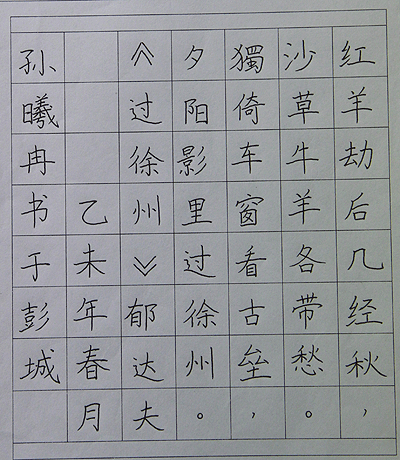 红羊劫后几经秋，
沙草牛羊各带愁。
獨倚车窗看古垒，
夕阳影里过徐州。
《过徐州》郁达夫
乙未年春月
孙曦冉书于彭城